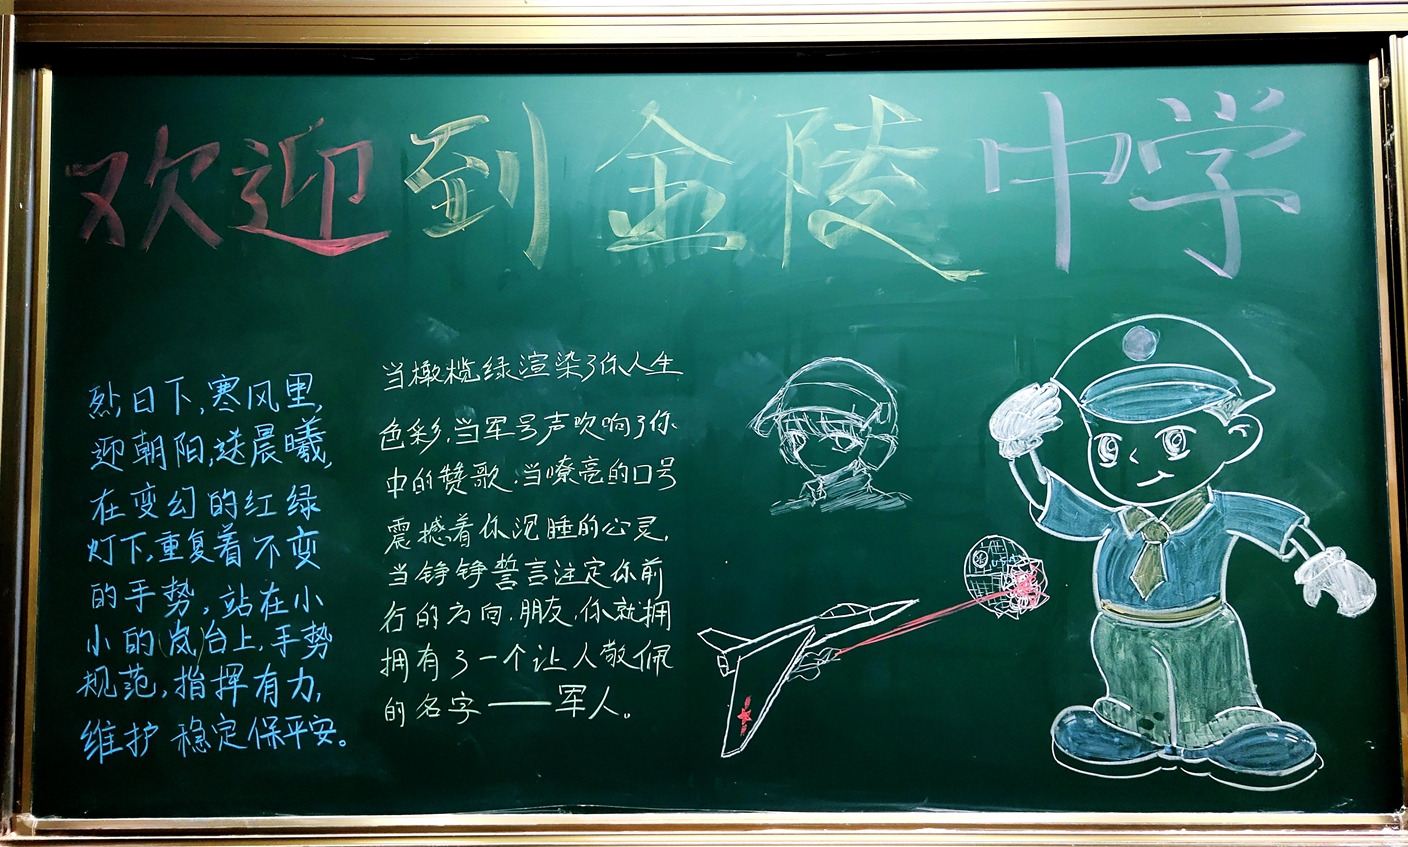 欢迎到金陵中学
烈日下,寒风里,
迎朝阳,送晨曦,
在变幻的红绿
灯下,重复着不变
的手势,站在小
小的岚台上,手势
规范,指挥有力,
维护稳定保平安。
当橄榄绿渲染了你人生
色彩,当军号声吹响了你
中的赞歌,当嘹亮的口号
震撼着你沉睡的心灵,
当铮铮誓言注定你前
行的方向,朋友,你就拥
拥有了一个让人敬佩
的名字——军人。